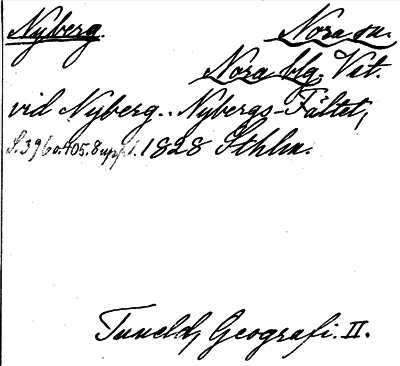 Nyberg. Nora sn.
Nora blg. Vst.
vid Nyberg.. Nybergs-Fältet,
S. 396 o. 405. 8 uppl. 1828 Sthlm.
Tuneld, Geografi. II.